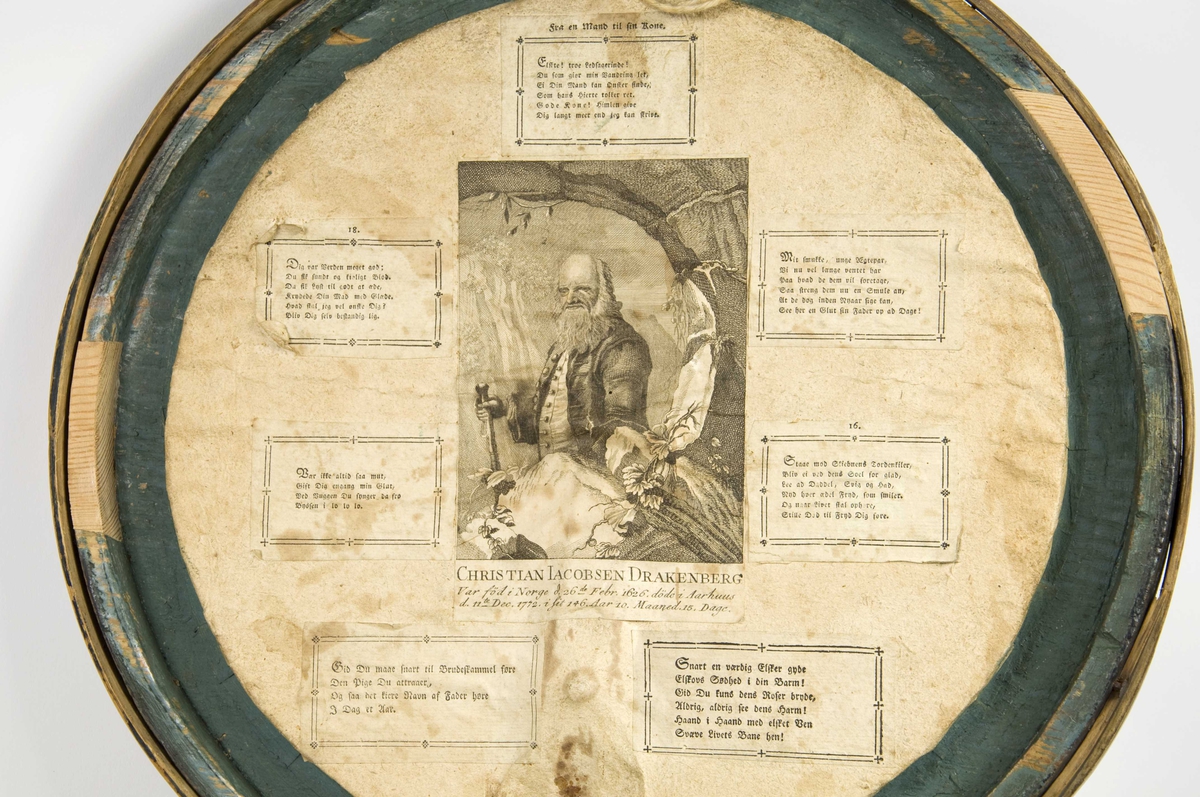 Fra en Mand til sin Kone.
Elskte! troe Ledsagerinde!
Du som giør min Vandring let,
Ei Din Mand kan Ønsker finde,
Som hans Hierte tolker ret.
Gode Kone! Himlen give
Dig langt meer end jeg kan skrive.
18.
Dig var Verden meget god;
Du fik sundt og kraftigt Blod.
Da fik Lyst til godt at æde,
Krydede Din Mad med Glæde.
Hvad skal jeg vel ønske Dig?
Bliv Dig selv bestandig lig.
Mit smukke, unge Ægtepar,
Vi nu vel længe ventet har
Paa hvad de dem vil foretage,
Saa streng dem nu en Smule an,
At de dog inden Nyaar sige kan,
See her en Glut sin Fader op ad Dage!
Vær ikke altid saa mut,
Gift Dig engang min Glut,
Ved Vuggen Du synger da fro
Vyssen i lo lo lo.
16.
Staae mod Skiebnens Tordenkiler,
Bliv ei ved dens Soel for glad,
Lee ad Daddel, Sviig og Had,
Nyd hver ædel Fryd, som smiler.
Og naar Livet skal ophøre,
Stille Død til Fryd Dig føre.
CHRISTIAN IACOBSEN DRAKENBERG
Var föd i Norge d. 26de Febr. 1626. döde i Aarhuus
d. 11te Dec. 1772. i sit 146. Aar 10. Maaned. 15. Dage.
Gid Du maae snart til Brudeskammel føre
Den Pige Du attraaer,
Og saa det kiere Navn af Fader høre
I Dag et Aar.
Snart en værdig Elsker gyde
Elskovs Sødhed i din Barm!
Gid Du kuns dens Roser bryde,
Aldrig, aldrig see dens Harm!
Haand i Haand med elsket Ven
Svæve Livets Bane hen!